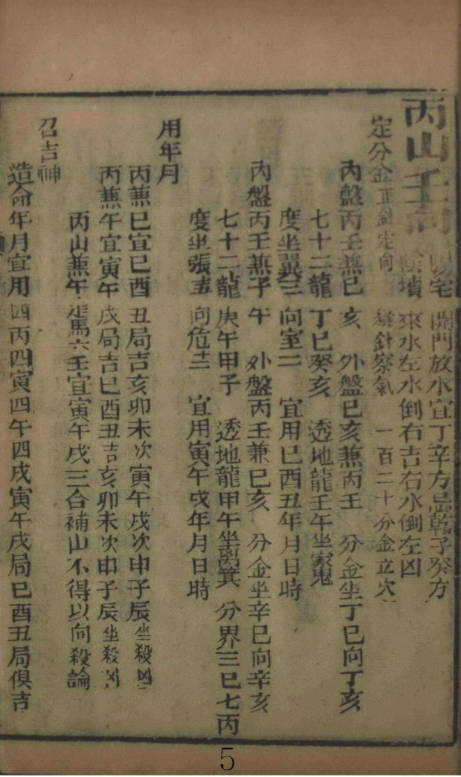 丙山壬向 陽宅 開門放水宜丁辛方忌乾子癸方
陰墳 來水左水倒右吉右水倒左凶
定分金正針定向 縫針察氣 一百二十分金立穴
內盤丙壬兼巳亥 外盤巳亥兼丙壬 分金坐丁巳向丁亥
七十二龍丁巳癸亥 透地龍壬午坐
度坐翼三向室二 宜用巳酉丑年月日時
內盤丙壬兼子午 外盤丙壬兼巳亥 分金坐辛巳向辛亥
七十二龍庚午甲子 透地龍甲午坐 分界三巳七丙
度坐張 向危 宜用寅午戌年月日時
用年月
丙兼巳宜巳酉丑局吉亥卯未次寅午戌次申子辰坐殺凶
丙兼午宜寅午戌局吉巳酉丑吉亥卯未次申子辰坐殺凶
丙山兼午 馬六壬宜寅午戌三合補山不得以向殺論
召吉神
造命年月宜用四丙四寅四午四戌寅午戌局巳酉丑局俱吉
5